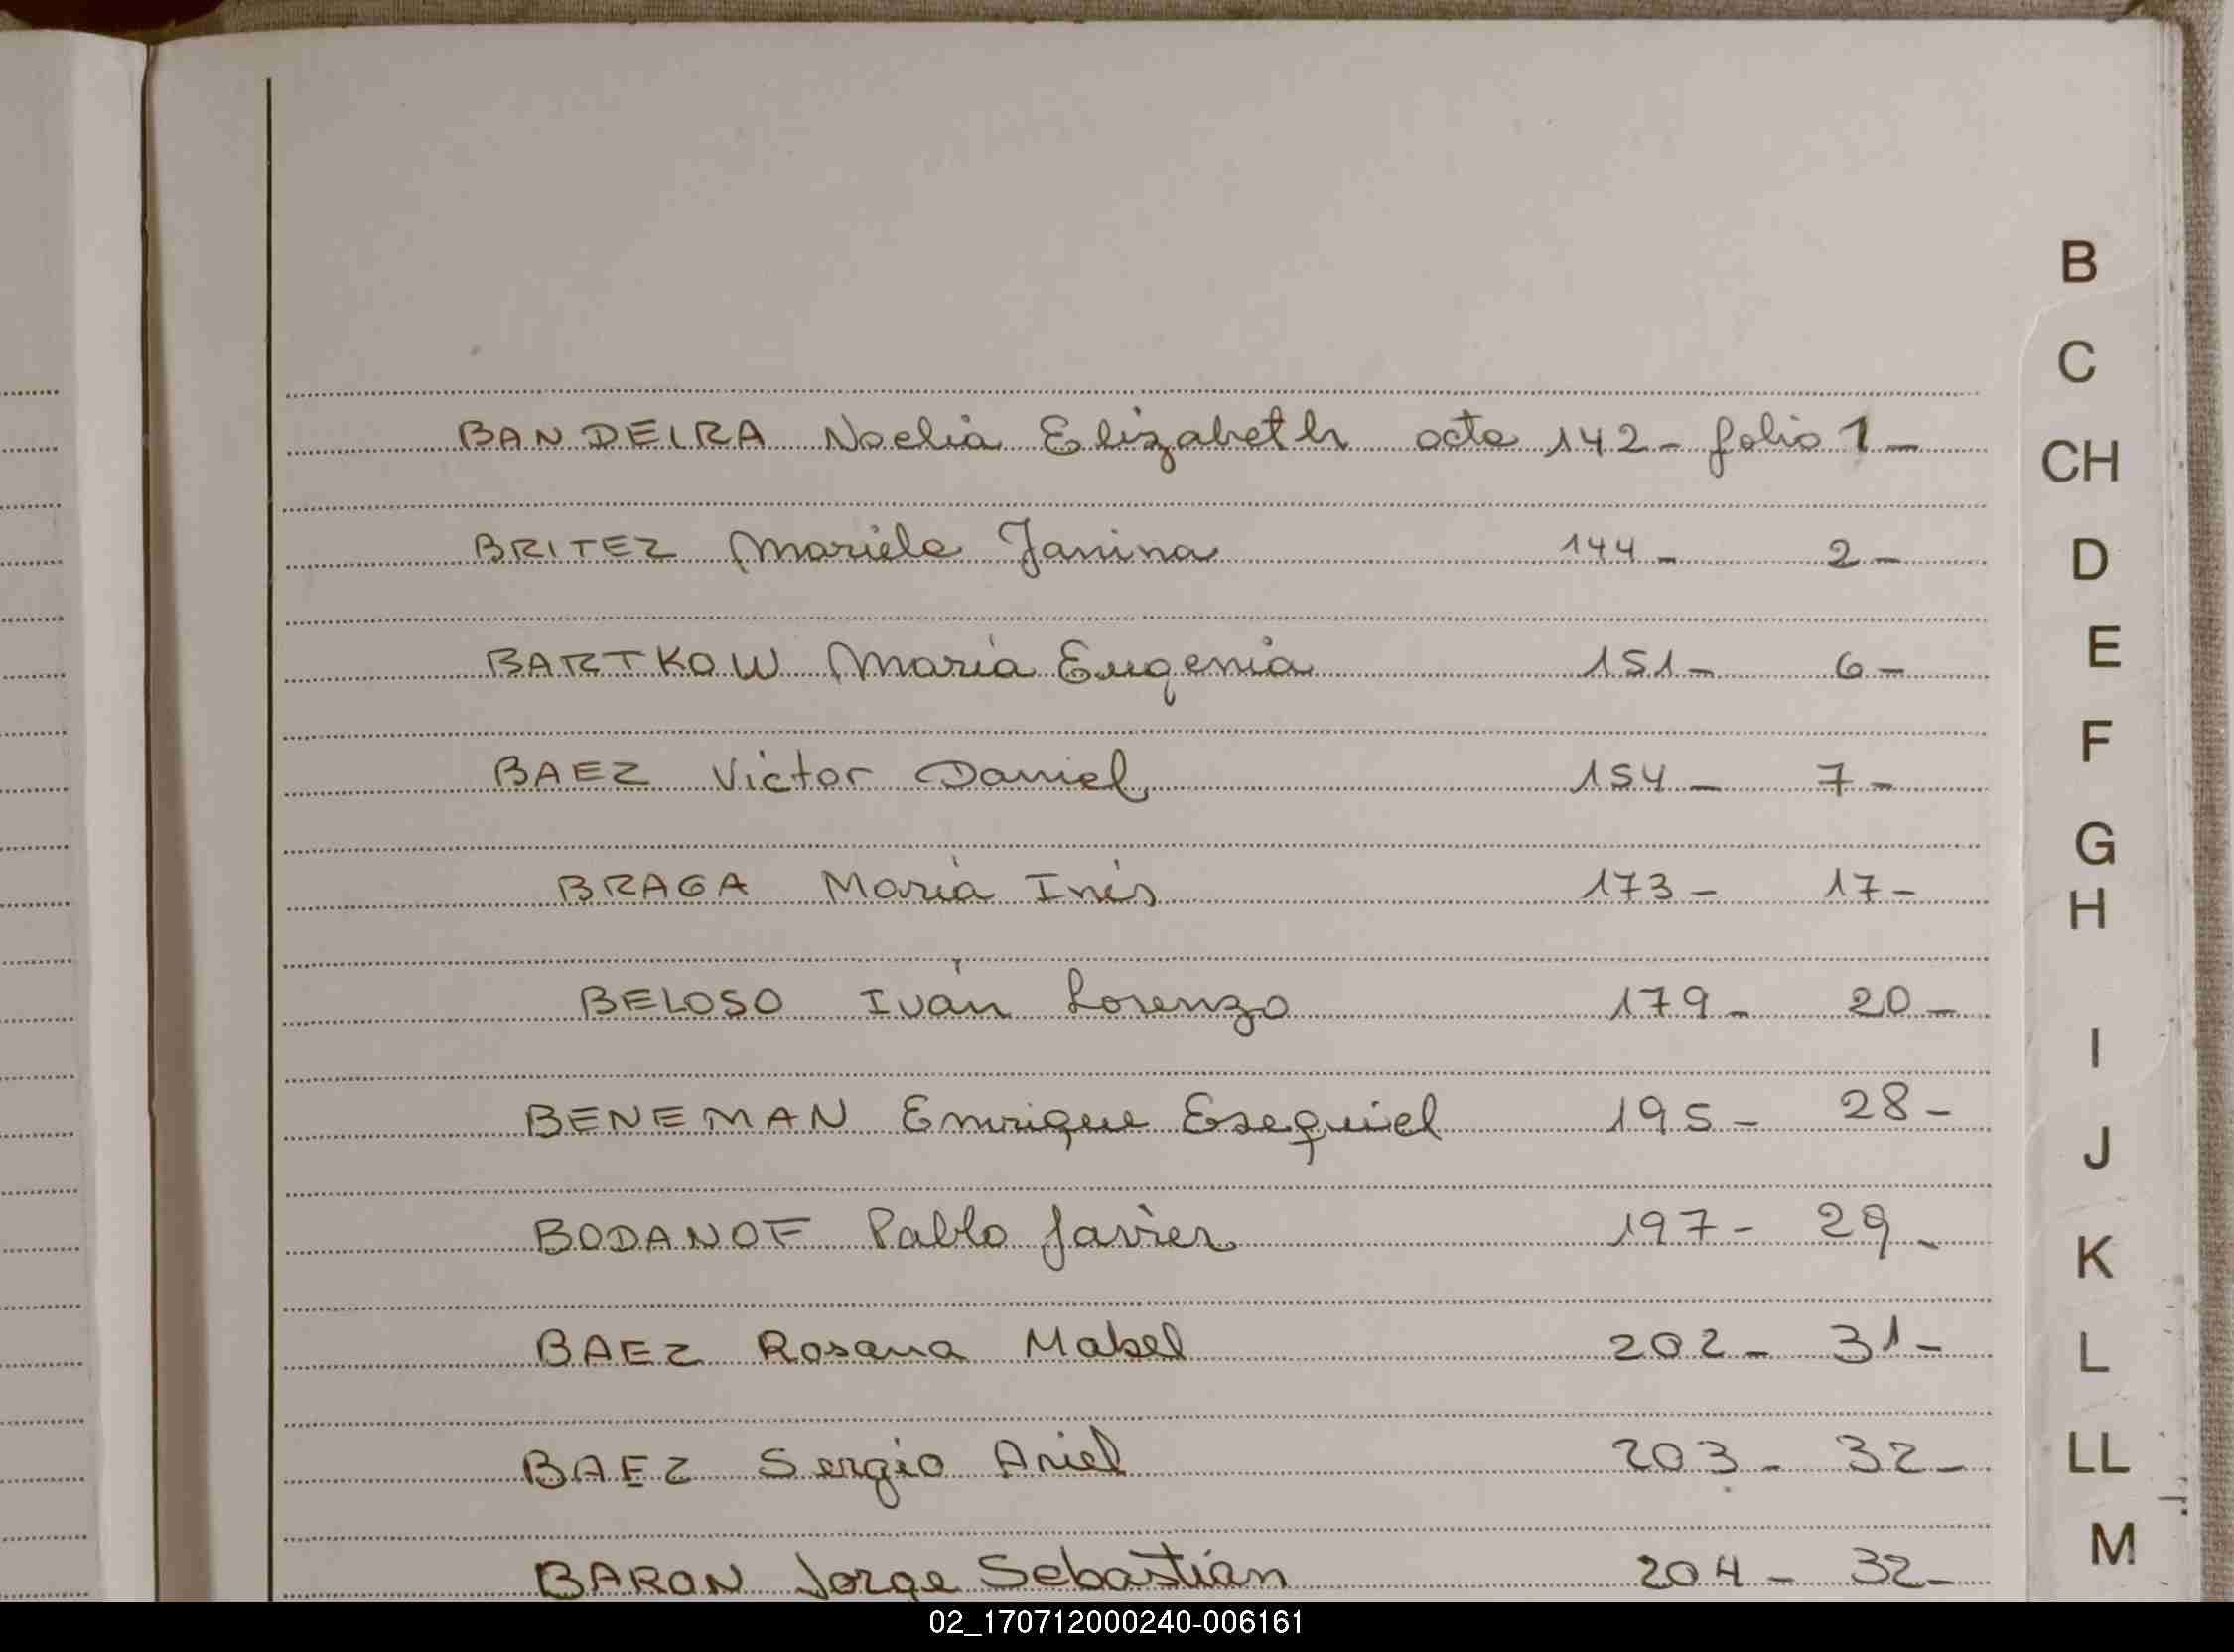 BANDEIRA Noelia Elizabeth acta 142 - folio 1 -
BRITEZ Mariela Janina 144 - 2 -
BARTKOW María Eugenia 151 - 6 -
BAEZ Victor Daniel 154 - 7 -
BRAGA María Inés 173 - 17 -
BELOSO Iván Lorenzo 179 - 20 -
BENEMAN Enrique Esequiel 195 - 28 -
BODANOF Pablo Javier 197 - 29 -
BAEZ Rosana Mabel 202 - 31 -
BAEZ Sergio Ariel 203 - 32 -
BARON Jorge Sebastián 204 - 32 -
B
C
CH
D
E
F
G
H
I
J
K
L
LL
M
02_170712000240-006161